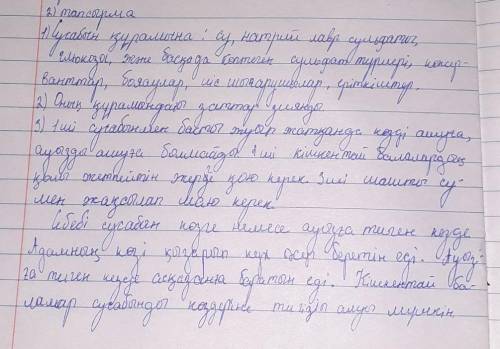 2) тапсырма
1) Сусабын құрамына: су, натрий лавр сульфаты,
глюкозы, және басқада көптеген сульфат түрлері, консер-
ванттар, бояулар, иіс шығарушылар, еріткіштер.
2) Оның құрамындағы заттар зиянды
3) 1 ші сусабынмен басты жуып жатқанда көзді ашуға,
ауызды ашуға болмайды 2 ші кішкентай балалардың
қолы жетпейтін жерде қою керек. 3 ші шашты су-
мен жақсылап шаю керек.
Себебі сусабан көзге немесе ауызға тиген кезде
Адамның көзі қызарып кері әсер беретін еді. Ауыз-
ға тиген кезде асқазанға баратын еді. Кішкентай ба-
лалар сусабынды көздеріне тигізіп алуы мүмкін